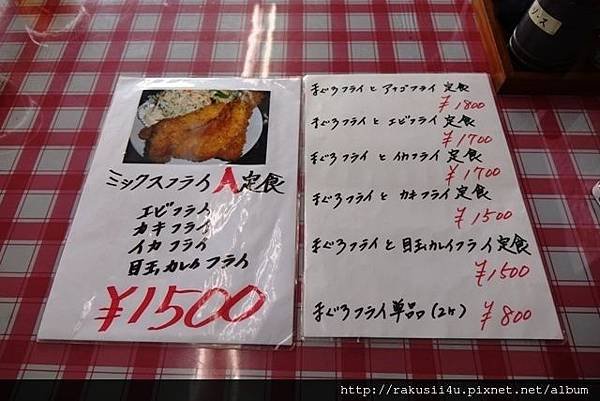 ミックスフライA定食
エビフライ
カキフライ
イカフライ
目玉カレイフライ
¥1500
まぐろフライと アナゴフライ 定食
¥1800
まぐろフライと エビフライ 定食
¥1700
まぐろフライと イカフライ 定食
¥1700
まぐろフライと カキフライ 定食
¥1500
まぐろフライと 目玉カレイフライ 定食
¥1500
まぐろフライ単品(2ケ) ¥800
ソース
http://rakusii4u.pixnet.net/album